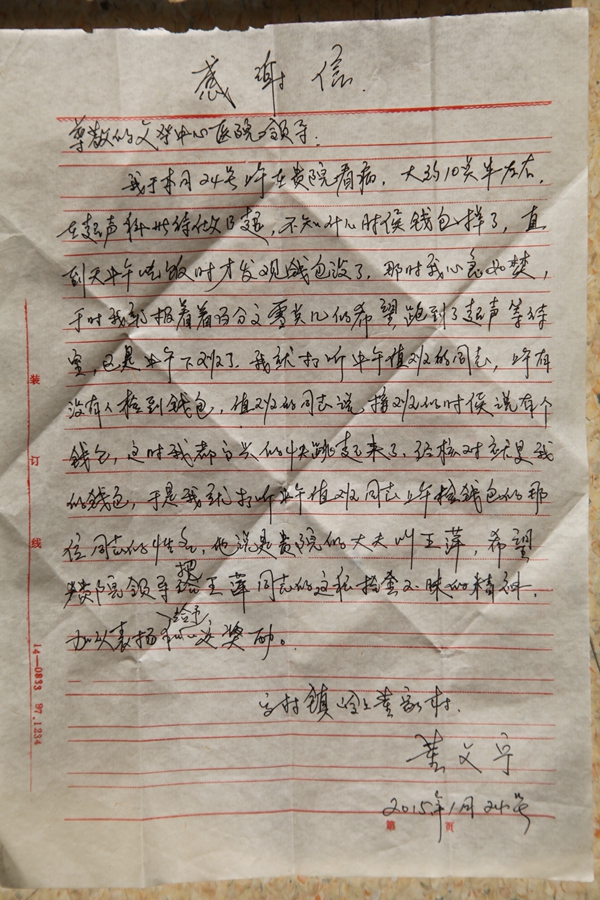 感谢信.
尊敬的文登中心医院领导:
我于本月24号上午在贵院看病,大约10点半左右,
在超声科
不知什么时候钱包掉了,直
到天中午吃饭时才发现钱包没了,那时我心急如焚,
于时我就报着着百分之零点几的希望跑到了超声等待
室,已是中午下班了.我就打听中午值班的同志,上午有
没有人检到钱包,值班的同志说,接班的时候说有个
钱包,这时我都高兴的快跳起来了.经核对就是我
的钱包,于是我就打听中午值班同志上午检钱包的那
位同志的姓名,他说是贵院的大夫叫王萍,希望
贵院领导把王萍同志的这种拾金不昧的精神,
加以表扬给予奖励。
镇
黄家村.
2015年1月24号
装
订
线
14—0833 97.1234
第 页